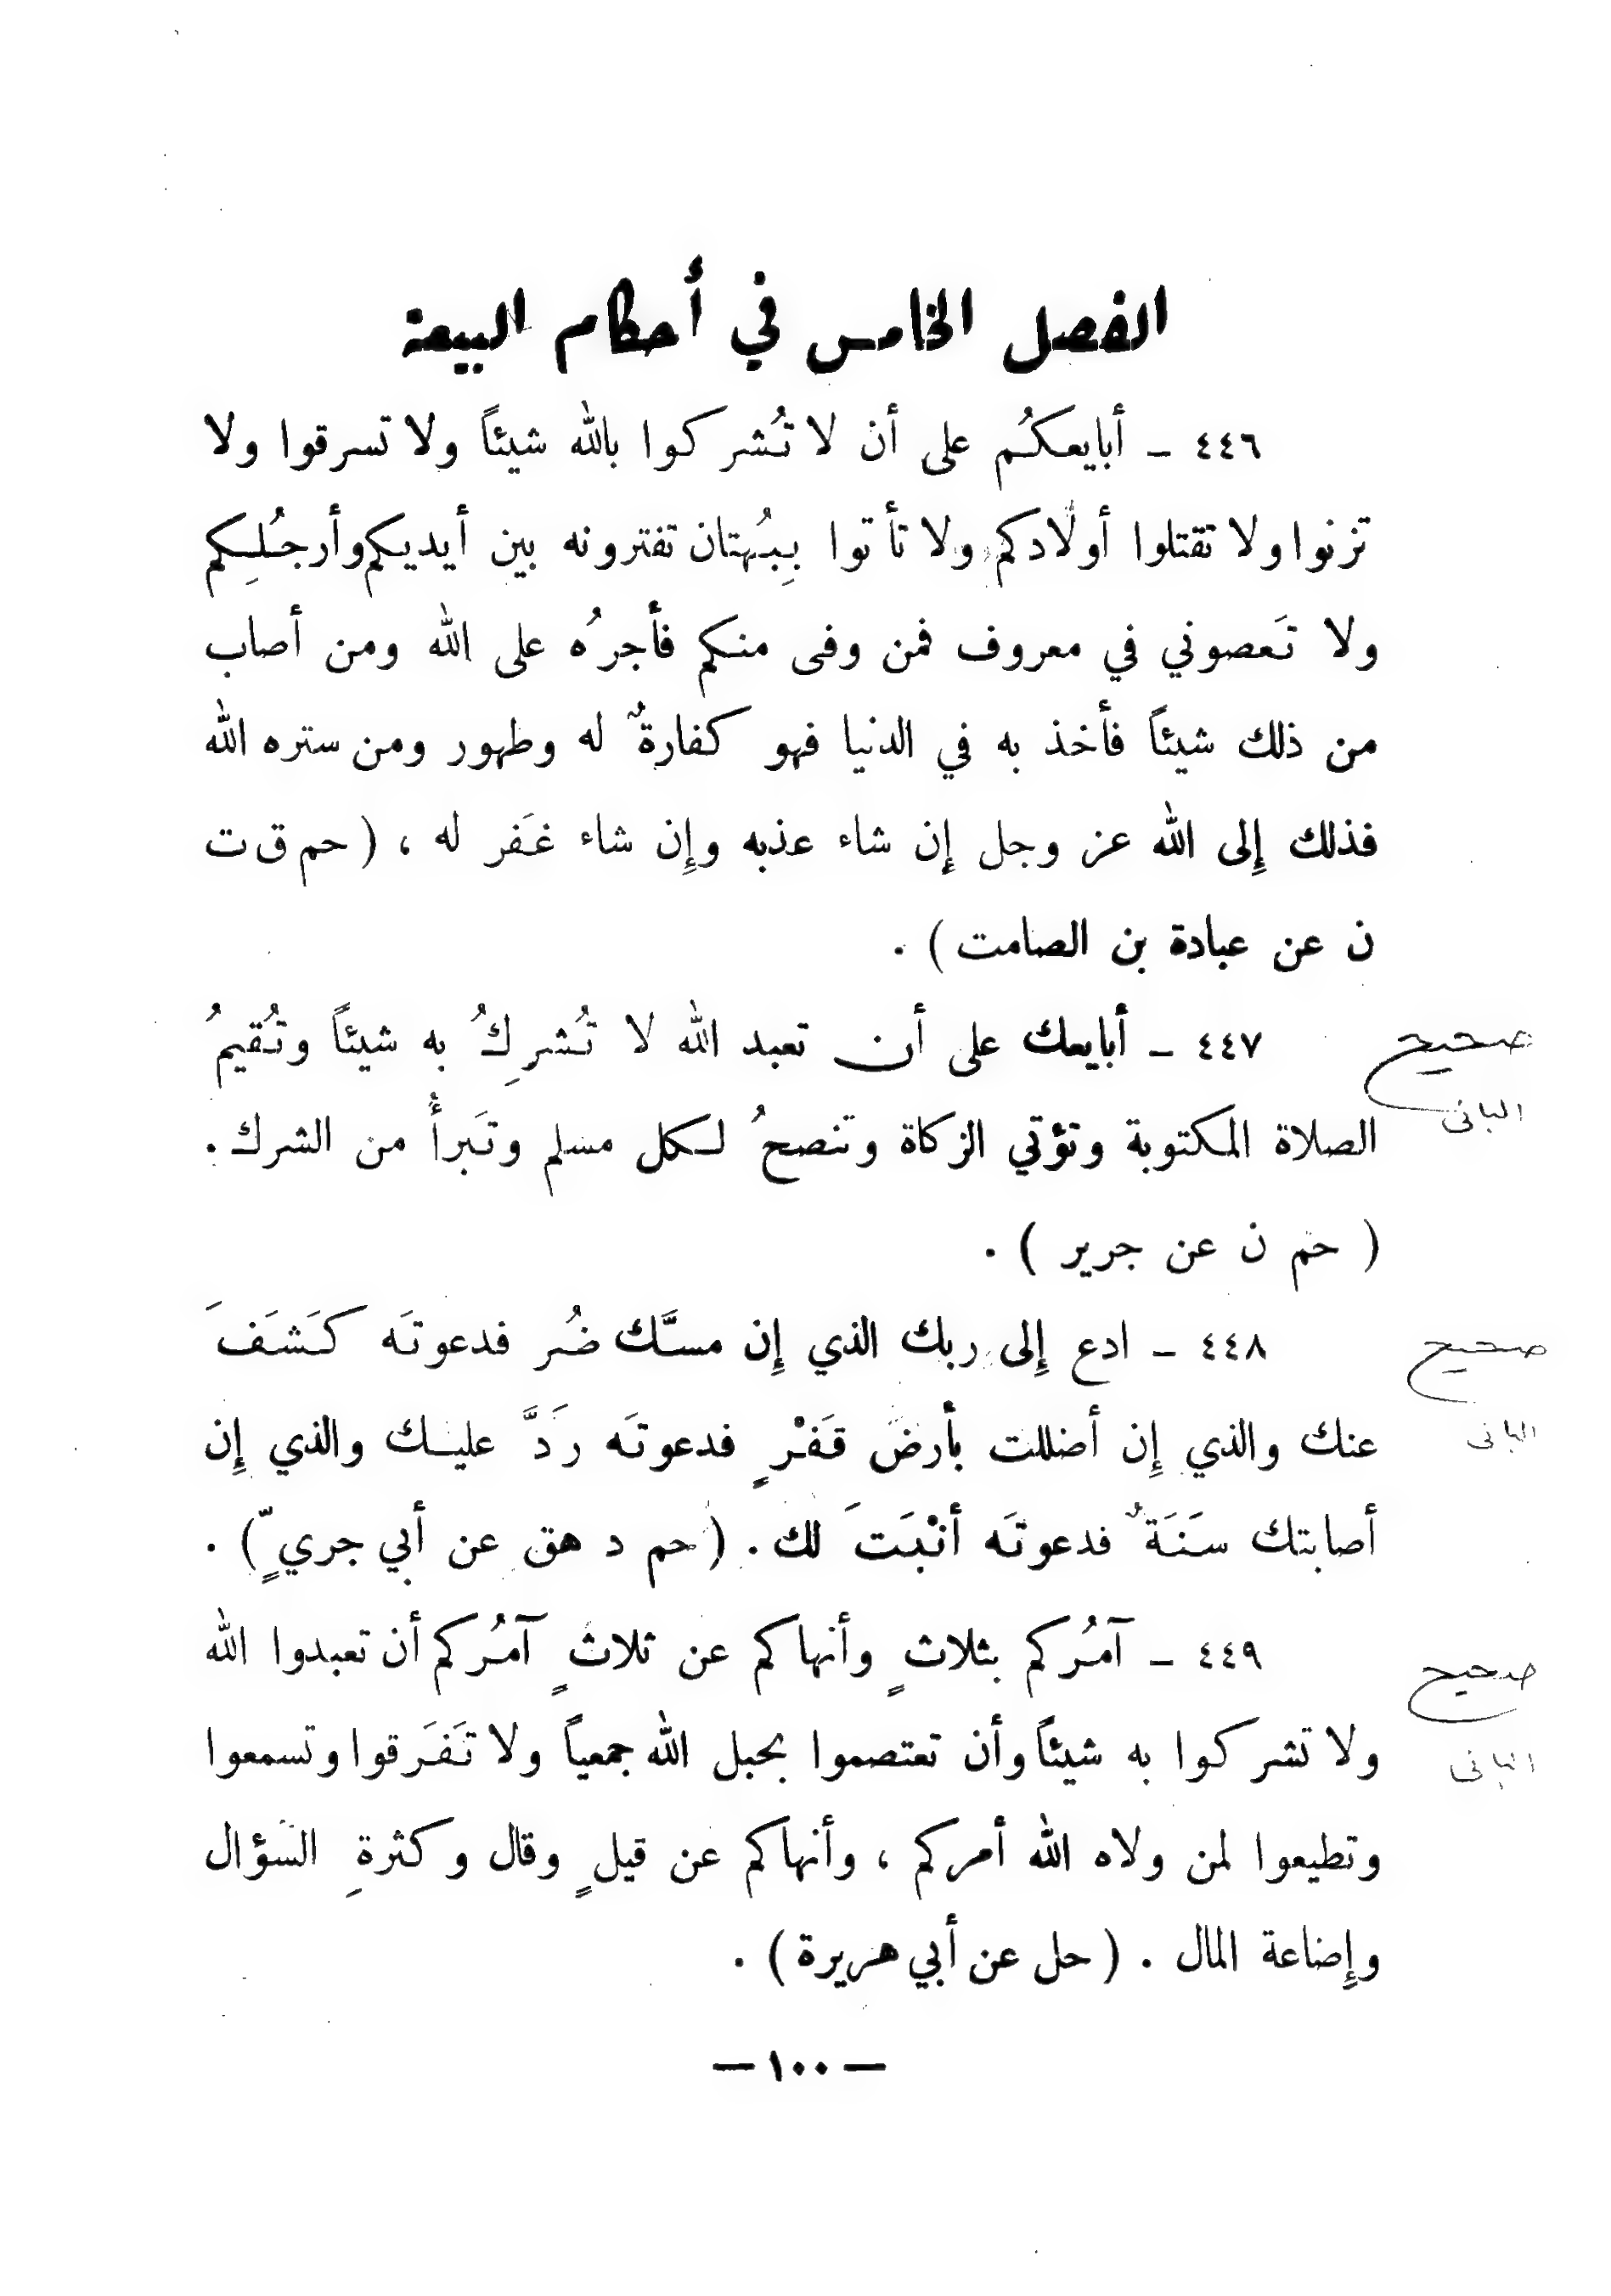 الفصل الخامس في أحكام البيعة
٤٤٦ ـ أبايعكُم على أن لا تُشركوا بالله شيئاً ولا تسرقوا ولا
تزنوا ولا تقتلوا أولادكم ولا تأتوا بِبُهتان تفترونه بين أيديكم وأرجُلِكم
ولا تَعصوني في معروف فمن وفى منكم فأجرُه على الله ومن أصاب
من ذلك شيئاً فأخذ به في الدنيا فهو كفارةٌ له وطهور ومن ستره الله
فذلك إِلى الله عز وجل إن شاء عذبه وإِن شاء غَفر له ، ( حم ق ت
ن عن عبادة بن الصامت ) .
٤٤٧ ـ أبايعك على أن تعبد الله لا تُشرِكُ به شيئاً وتُقيمُ
صحيح
الصلاة المكتوبة وتؤتي الزكاة وتنصحُ لكل مسلم وتَبرأُ من الشرك .
البانى
( حم ن عن جرير ) .
٤٤٨ ـ ادع إِلى ربك الذي إِن مسَّك ضُر فدعوتَه كَشَفَ
صحيح
عنك والذي إِن أضللت بأرض قَفْرٍ فدعوتَه رَدَّ عليك والذي إِن
البانى
أصابتك سَنَةٌ فدعوتَه أنْبَتَ لك . ( حم د هق عن أبي جريٍّ ) .
٤٤٩ ـ آمُركم بثلاثٍ وأنهاكم عن ثلاثٍ آمُركم أن تعبدوا الله
صحيح
ولا تشركوا به شيئاً وأن تعتصموا بحبل الله جمعياً ولا تَفَرقوا وتسمعوا
البانى
وتطيعوا لمن ولاه الله أمركم ، وأنهاكم عن قيلٍ وقال وكثرةِ السؤال
وإِضاعة المال . ( حل عن أبي هريرة ) .
— ١٠٠ —